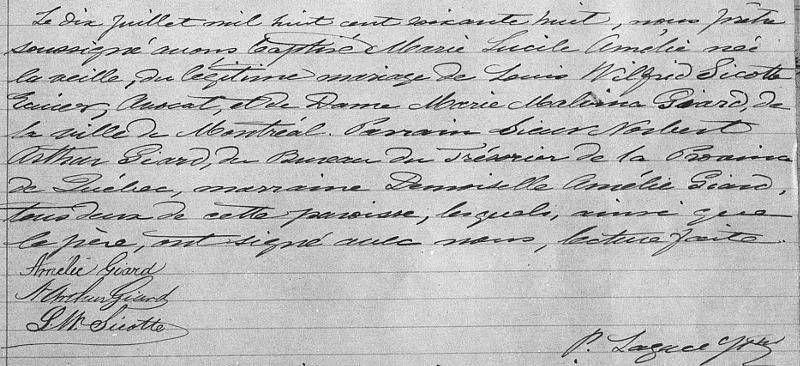 Le dix juillet mil huit cent soixante huit, nous prêtre
soussigné avons baptisé Marie Lucile Amélie née
la veille, du légitime mariage de Louis Wilfrid Sicotte
Ecuier, Avocat, et de Dame Marie Malvina Giard, de
la ville de Montréal. Parrain Sieur Norbert
Arthur Giard, du Bureau du Trésorier de la Province
de Québec, marraine Demoiselle Amélie Giard,
tous deux de cette paroisse, lesquels, ainsi que
le père, ont signé avec nous, lecture faite.
Amélie Giard
N Arthur Giard
L. W. Sicotte
P. Lagacé Ptre